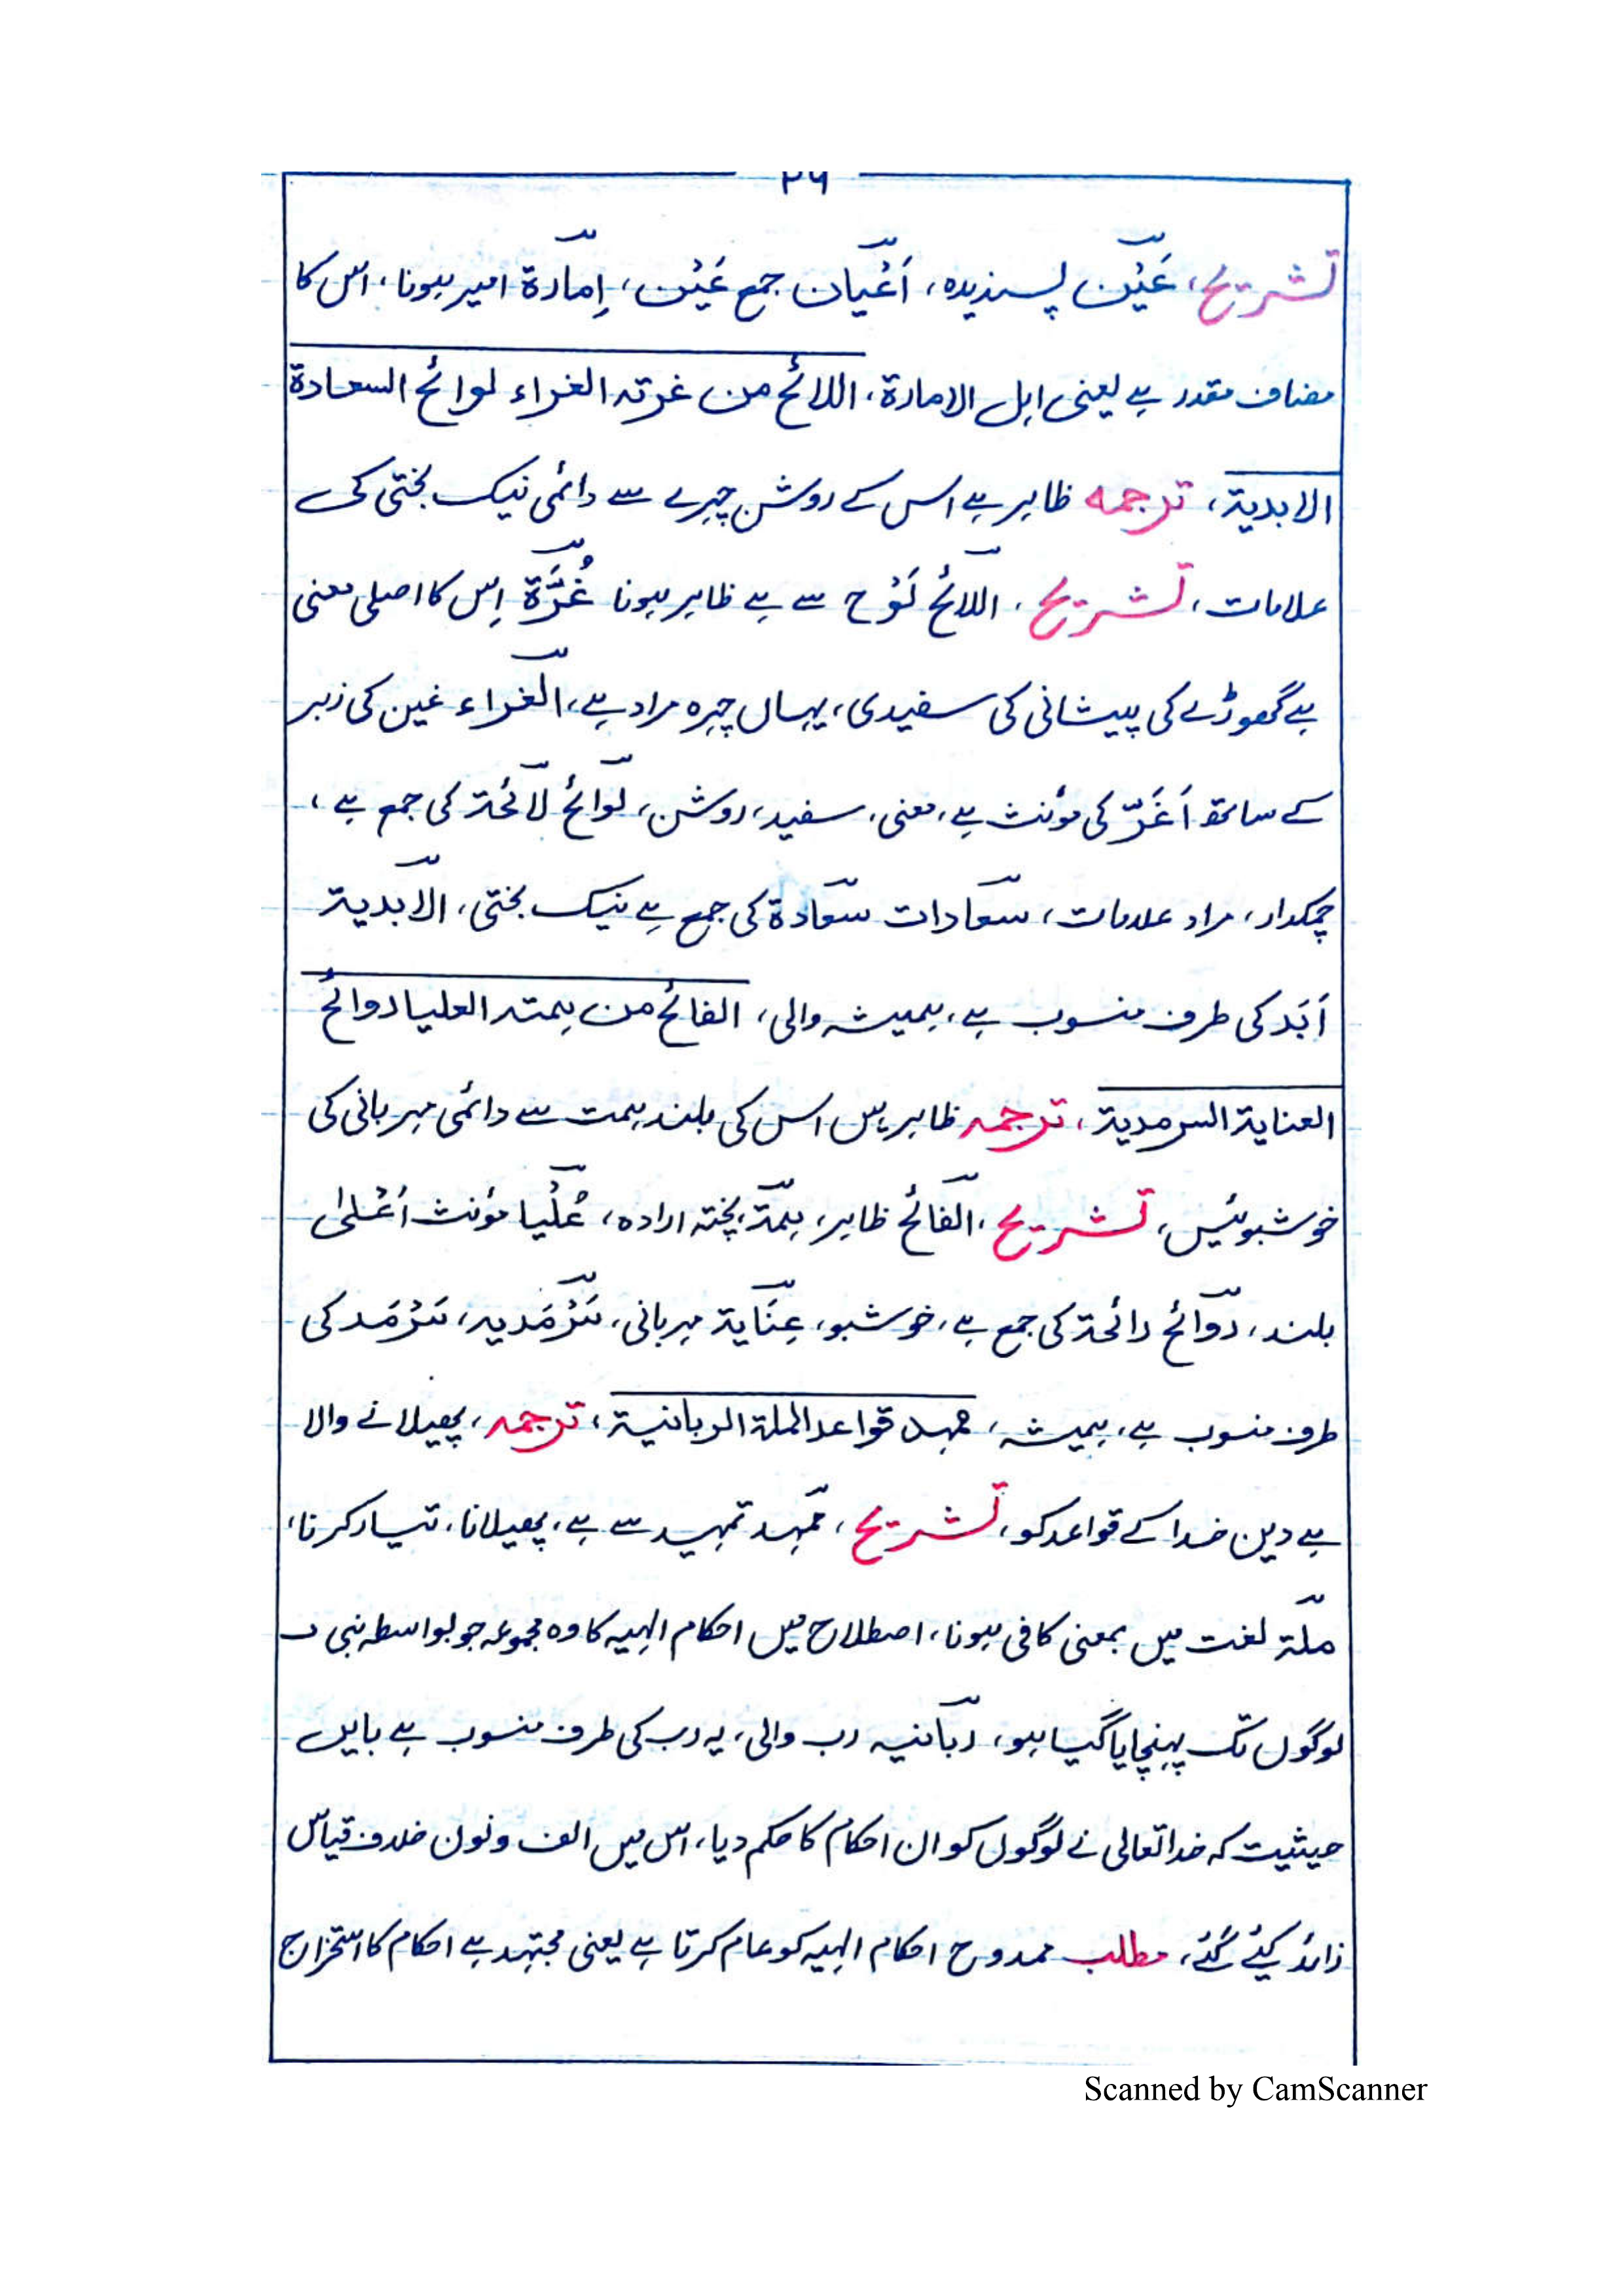 ۲۶
تشریح، عَیْن پسندیدہ، اَعْیان جمع عَیْن، اِمارۃ امیر ہونا، اس کا
مضاف مقدر ہے یعنی اہل الامارۃ، اللائح من غرتہ الغراء لوائح السعادۃ
الابدیۃ، ترجمہ ظاہر ہے اس کے روشن چہرے سے دائمی نیک بختی کی
علامات، تشریح، اللائح لَوْح سے ہے ظاہر ہونا غُرَّۃ اِس کا اصلی معنی
ہے گھوڑے کی پیشانی کی سفیدی، یہاں چہرہ مراد ہے، الغراء غین کی زبر
کے ساتھ اَغَرّ کی مؤنث ہے، معنی، سفید، روشن، لوائح لائحۃ کی جمع ہے،
چمکدار، مراد علامات، سعادات سعادۃ کی جمع ہے نیک بختی، الابدیۃ
اَبَد کی طرف منسوب ہے، ہمیشہ والی، الفائح من ہمتہ العلیا روائح
العنایۃ السرمدیۃ، ترجمہ ظاہر ہیں اس کی بلند ہمت سے دائمی مہربانی کی
خوشبوئیں، تشریح، الفائح ظاہر، ہمۃ پختہ ارادہ، عُلْیا مؤنث اَعْلیٰ
بلند، روائح رائحۃ کی جمع ہے، خوشبو، عِنَایۃ مہربانی، سَرْمَدیہ، سَرْمَد کی
طرف منسوب ہے، ہمیشہ، ممہد قواعد الملۃ الربانیۃ، ترجمہ، پھیلانے والا
ہے دین خدا کے قواعد کو، تشریح، ممہد تمہید سے ہے، پھیلانا، تیار کرنا،
ملّۃ لغت میں بمعنی کافی ہونا، اصطلاح میں احکام الہیہ کا وہ مجموعہ جو بواسطہ نبی
لوگوں تک پہنچایا گیا ہو، ربانیہ رب والی، یہ رب کی طرف منسوب ہے بایں
حیثیت کہ خدا تعالی نے لوگوں کو ان احکام کا حکم دیا، اس میں الف و نون خلاف قیاس
زائد کیئے گئے، مطلب ممدوح احکام الہیہ کو عام کرتا ہے یعنی مجتہد ہے احکام کا استخراج
Scanned by CamScanner